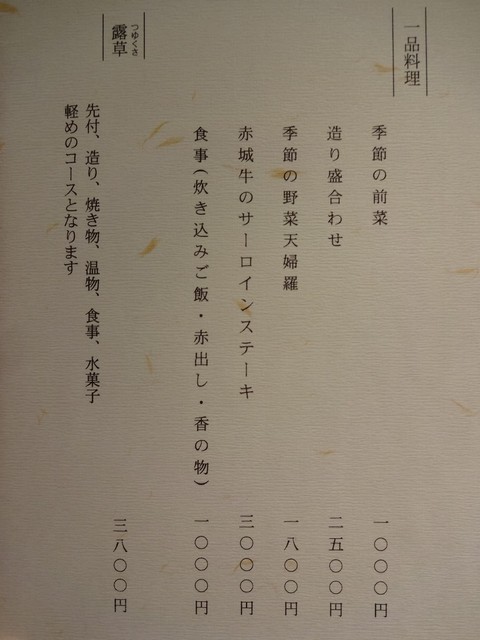 一品料理
季節の前菜 一〇〇〇円
造り盛合わせ 二五〇〇円
季節の野菜天婦羅 一八〇〇円
赤城牛のサーロインステーキ 三〇〇〇円
食事(炊き込みご飯・赤出し・香の物) 一〇〇〇円
露草
つゆくさ
三八〇〇円
先付、造り、焼き物、温物、食事、水菓子
軽めのコースとなります